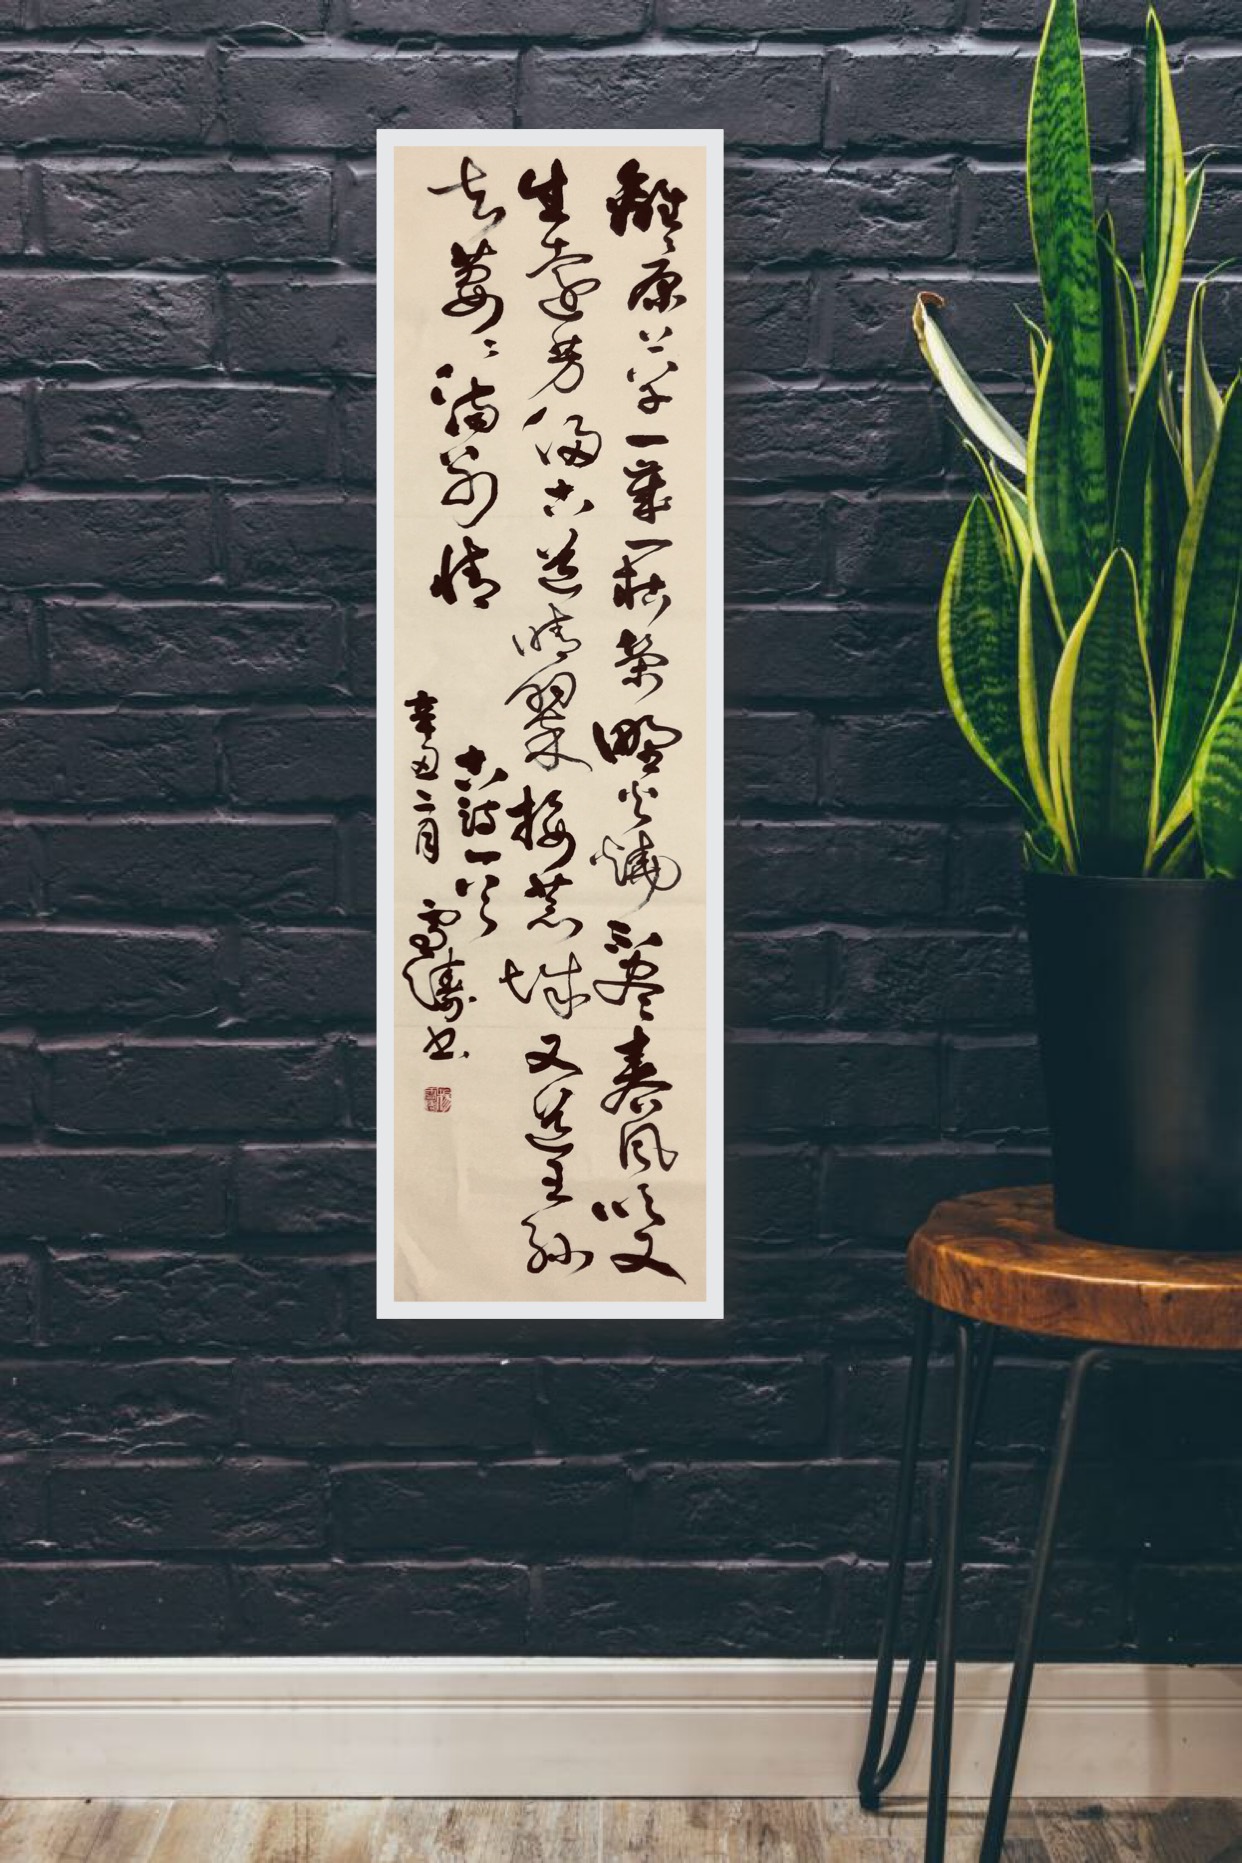 離〻原上草一歲一枯榮野火燒不盡春風吹又
生遠芳侵古道晴翠接荒城又送王孫
去萋〻滿別情
古詩一首
辛丑二月 雪濤书